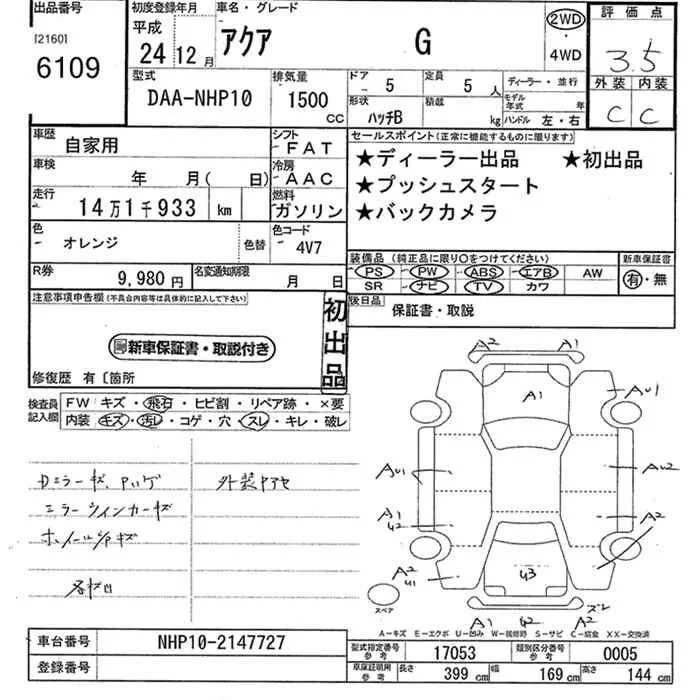 出品番号
[2160]
6109
初度登録年月
平成
24年 12月
車名・グレード
アクア G
2WD
・
4WD
評価点
3.5
外装 内装
C C
型式
DAA-NHP10
排気量
1500
CC
ドア 5
定員 5 人
形状
ハッチB
積載 kg
ディーラー・並行
モデル年式 年
ハンドル 左・右
車歴 自家用
シフト FAT
車検 年 月( 日)
冷房 AAC
走行 14万1千933 km
燃料 ガソリン
色 オレンジ
色替
色コード 4V7
R券 9,980円
名変通知期限 月 日
セールスポイント(正常に機能するものに限ります)
★ディーラー出品 ★初出品
★プッシュスタート
★バックカメラ
装備品(純正品に限り○をつけてください)
PS PW ABS エアB AW
SR ナビ TV カワ
新車保証書
有・無
後日品
保証書・取説
注意事項申告欄(不具合内容等は具体的に記入して下さい)
新車保証書・取説付き
初出品
修復歴 有〔箇所
検査員記入欄
FW キズ・飛石・ヒビ割・リペア跡・×要
内装 キズ・汚レ・コゲ・穴・スレ・キレ・破レ
ミラーウインカーキズ
A2 A1
A1
AU1
AU1
AU2
A1
U2
A2
A2
U1
U3
スペア
A1 U2 A2
ズレ
A-キズ E-エクボ U-凹み W-板修跡 S-サビ C-腐食 XX-交換済
車台番号 NHP10-2147727
登録番号
型式指定番号参考 17053
類別区分番号参考 0005
車庫証明用参考 長さ 399 cm 幅 169 cm 高さ 144 cm